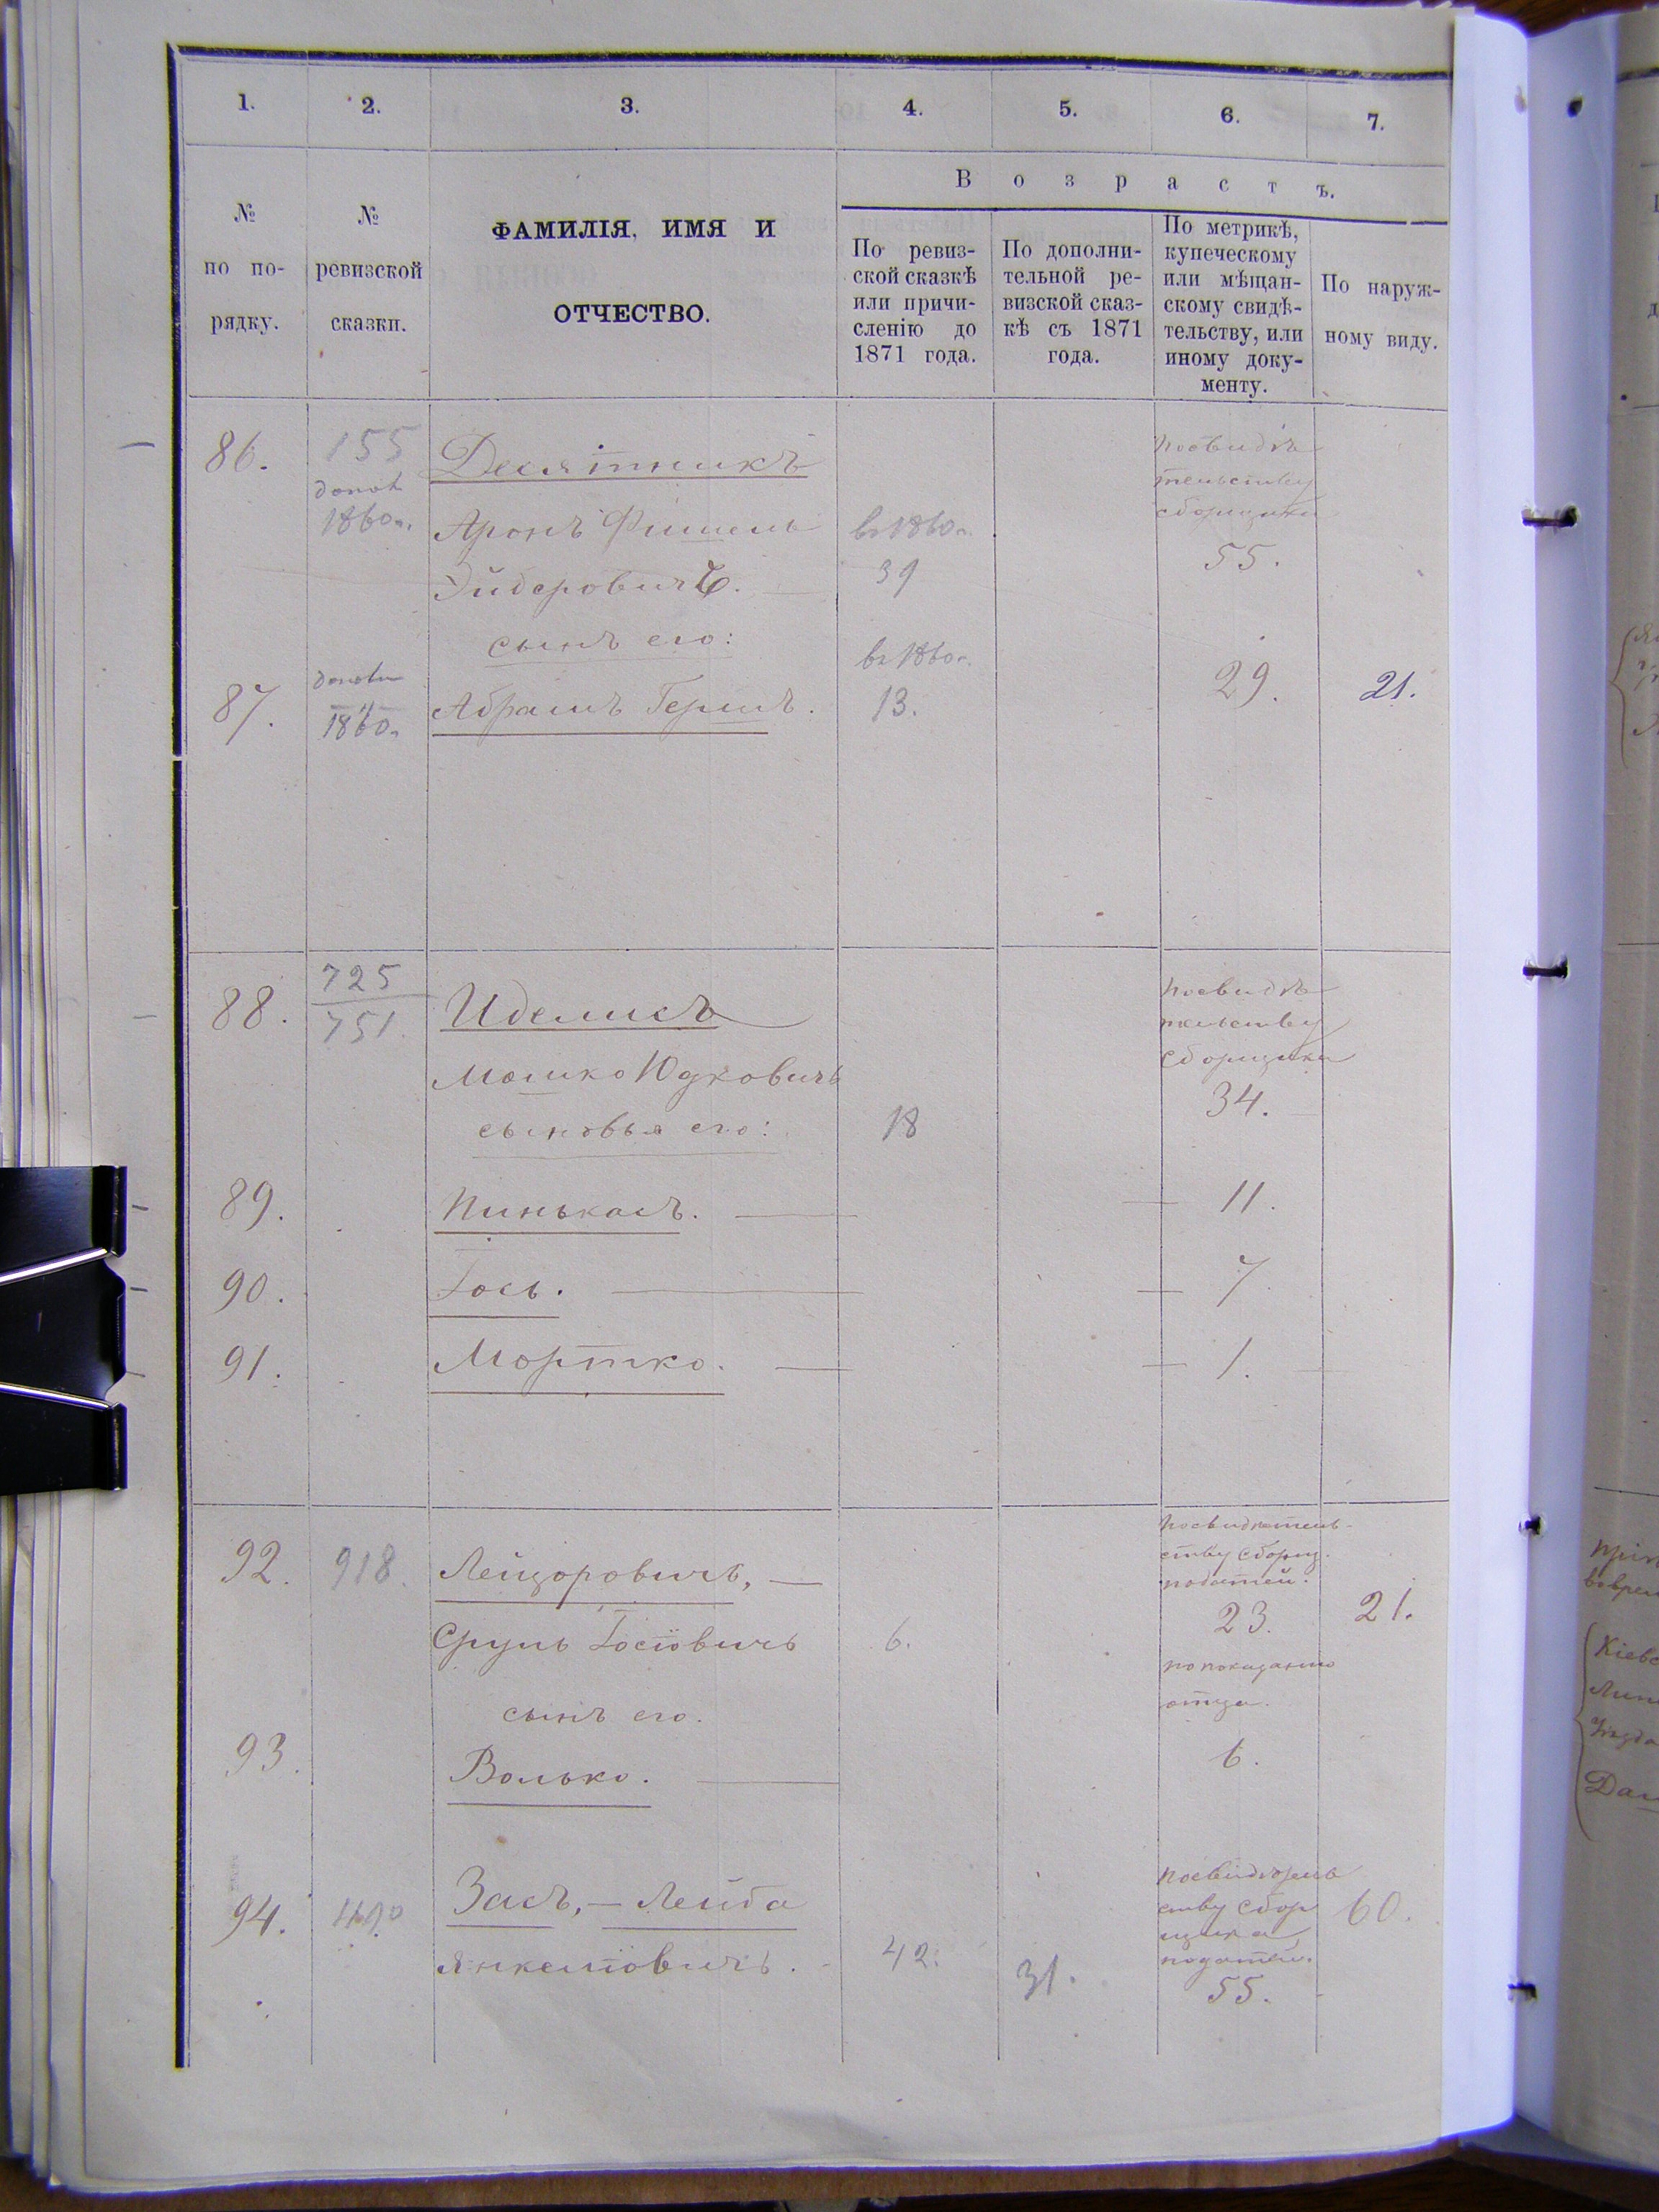 1.
2.
3.
4.
5.
6.
7.
№ по по-рядку.
№ ревизской сказки.
ФАМИЛІЯ, ИМЯ И
ОТЧЕСТВО.
В о з р а с т ъ.
По ревиз-
ской сказкѣ
или причи-
сленію до
1871 года.
По дополни-
тельной ре-
визской сказ-
кѣ съ 1871
года.
По метрикѣ,
купеческому
или мѣщан-
скому свидѣ-
тельству, или
иному доку-
менту.
По наруж-
ному виду.
86. 155 Десятникъ
1860г.
Аронъ Фишель въ 1860г.
Эйдеровичъ. 39
по свидѣ
тельству
сборщика
55.
сынъ его: въ 1860г.
87. 1860г. Абрамъ Гершъ. 13. 29. 21.
88. 725
751. Иделисъ
Мошко Юдковичъ
по свидѣ
тельству
сборщика
34.
сыновья его: 18
89. Пинькасъ. 11.
90. Іось. 7
91. Мортко. 1.
92. 918. Лейзоровичъ,
по свидѣтель-
ству сборщ.
податей.
Сруль Іосіовичъ 6. 23. 21.
по показанию
отца.
сынъ его.
93. Волько. 6.
94. Засъ, — Лейба
Янкеліовичъ. 42. 31.
по свидѣтель
ству сбор
щика
податей.
55. 60.
Кіевс